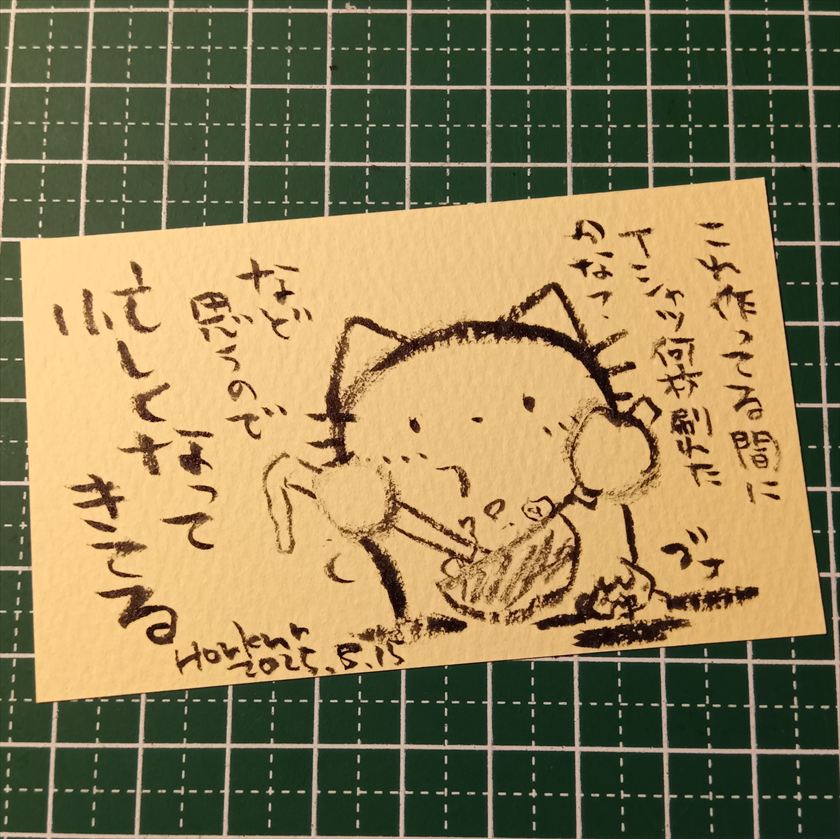 これ作ってる間に
Tシャツ何枚刷れた
かなっ
など
思うので
忙しくなって
きてる
2025.5.15